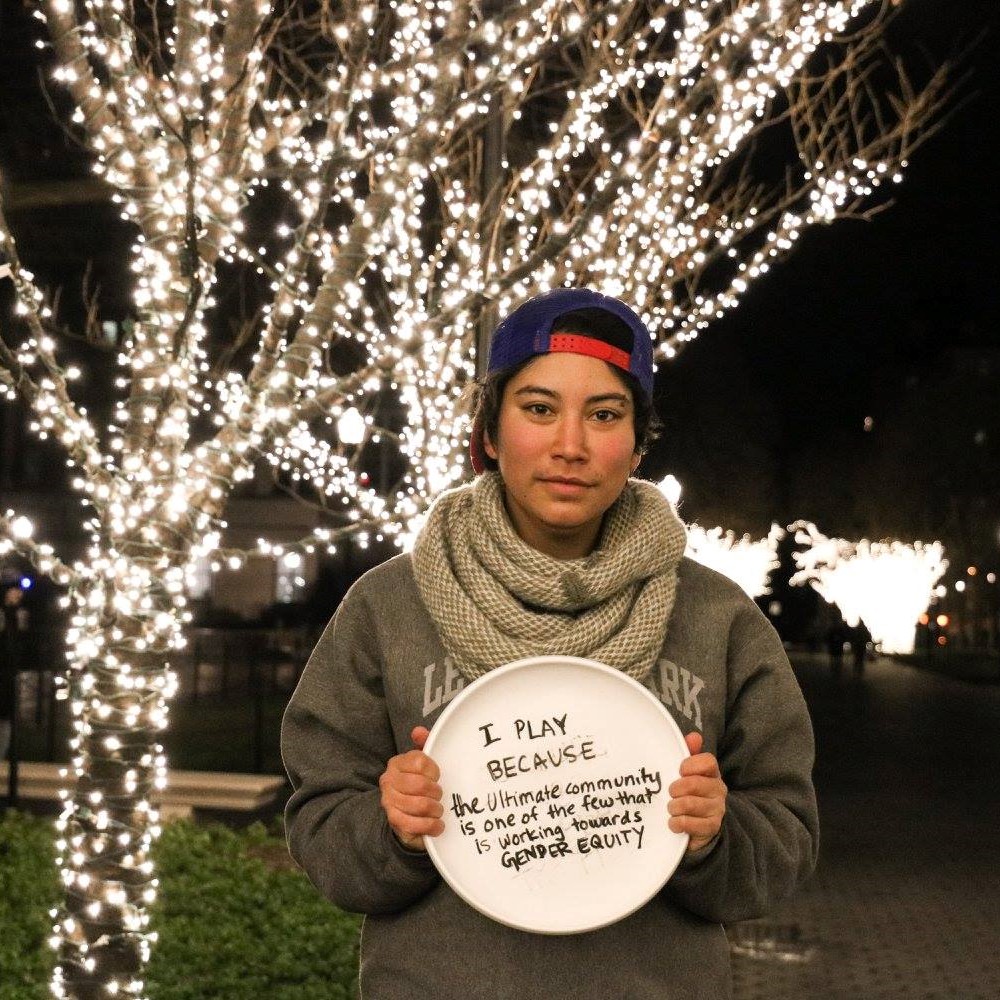 I PLAY
BECAUSE
the Ultimate community
is one of the few that
is working towards
GENDER EQUITY